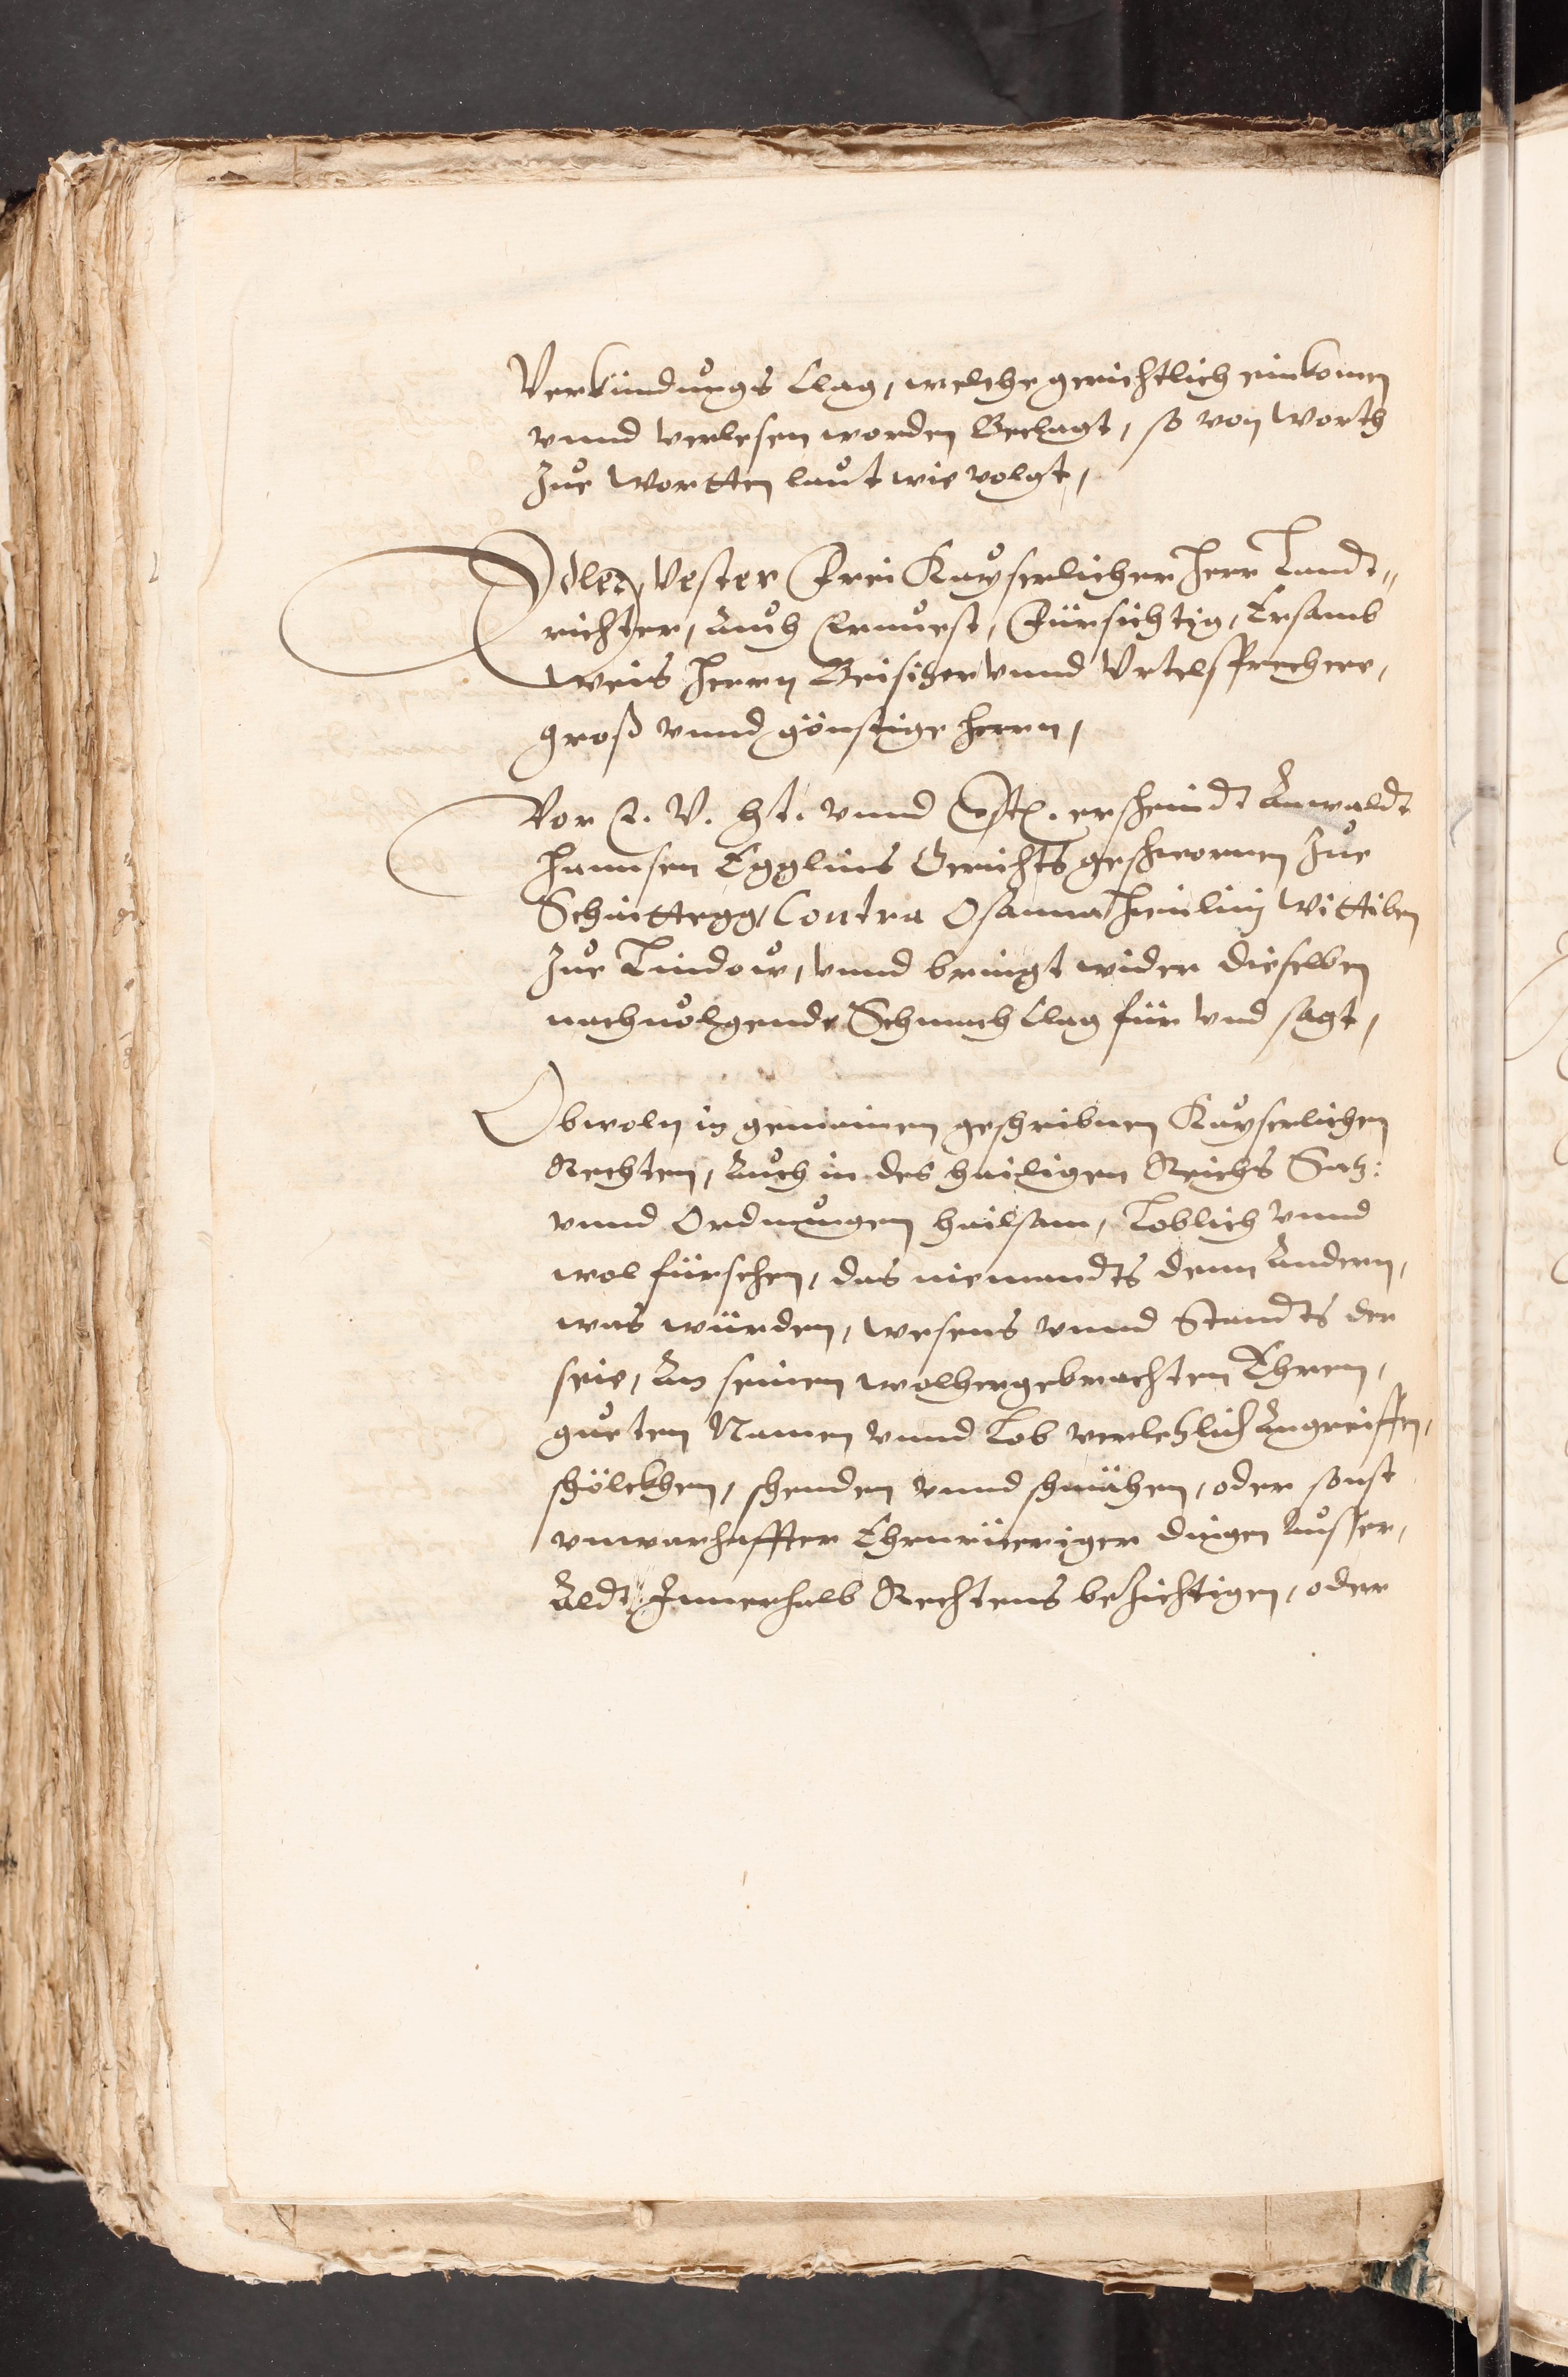 Verkündungs Clag, welche gerichtlich einkomen
vnnd verlesen worden Beclagt, so von Worth
Zue Wortten laut wie volgt,
Edler, Vester Frei Kayserlicher Herr Landt-
richter, Auch Ernuest, Fürsichtig, Ersamb
weis Herrn Beisizer vnnd Vrtelsprechere,
groß vnnd gönstige Herrn,
Vor E. V. ht. vnnd erscheindt Anwaldt
Hannsen Egglins Gerichts geschwornen Zue
Schnittegg, Contra Osanna Heinlin Wittiben
Zue Lindow, vnnd bringt wider dieselben
nachuolgende Schmach Clag für vnd sagt,
Obwoln in gemainen geschribnen Kayserlichen
Rechten, Auch in des hailigen Reichs Satz:
vnnd Ordnungen hailsam, Loblich vnnd
wol fürsehen, das niemandts denn Andern,
was würden, wesens vnnd Standts der
seie, An seinen wolhergebrachten Ehren,
gueten Namen vnnd Lob verletzlich Angreiffen,
schölckhen, schenden vnnd schmähen, oder sonst
vnwarhaffter Ehrnrüeriger dingen Ausser,
Aldt Innerhalb Rechtens bezichtigen, oder